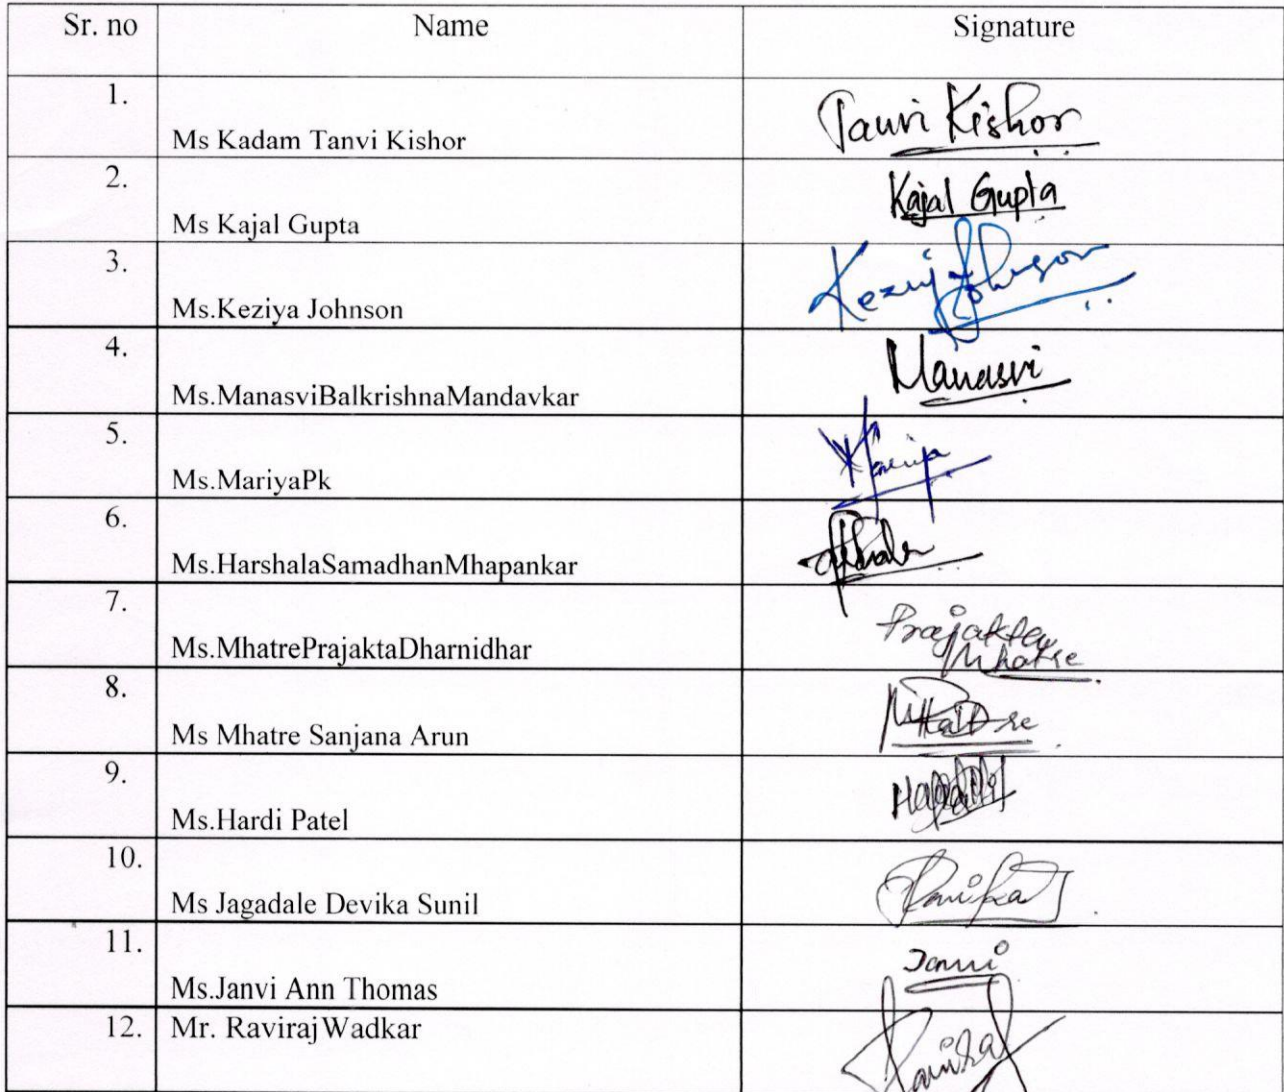 Sr. no Name Signature
1. Ms Kadam Tanvi Kishor Tanvi Kishor
2. Ms Kajal Gupta Kajal Gupta
3. Ms.Keziya Johnson Johnson
4. Ms.ManasviBalkrishnaMandavkar Manasvi
5. Ms.MariyaPk Mariya
6. Ms.HarshalaSamadhanMhapankar
7. Ms.MhatrePrajaktaDharnidhar Prajakta
Mhatre
8. Ms Mhatre Sanjana Arun Mhatre
9. Ms.Hardi Patel
10. Ms Jagadale Devika Sunil
11. Ms.Janvi Ann Thomas Janvi
12. Mr. Raviraj Wadkar